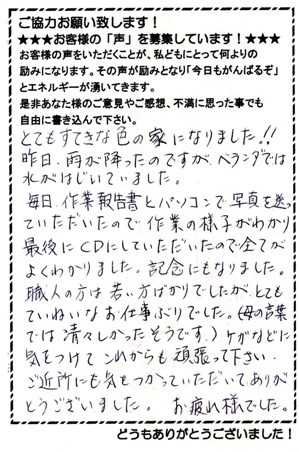 ご協力お願い致します！
★★★お客様の「声」を募集しています！★★★
お客様の声をいただくことが、私どもにとって何よりの
励みになります。その声が励みとなり「今日もがんばるぞ」
とエネルギーが湧いてきます。
是非あなた様のご意見やご感想、不満に思った事でも
自由に書き込んで下さい。
とてもすてきな色の家になりました!!
昨日、雨が降ったのですが、ベランダでは
水がはじいていました。
毎日、作業報告書とパソコンで写真を送っ
ていただいたので作業の様子がわかり
最後にCDにしていただいたので全てが
よくわかりました。記念にもなりました。
職人の方は若い方ばかりでしたが、とても
ていねいなお仕事ぶりでした。(母の言葉
では清々しかったそうです。) ケガなどに
気をつけて これからも 頑張って下さい。
ご近所にも気をつかっていただいて、ありが
とうございました。 お疲れ様でした。
どうもありがとうございました！